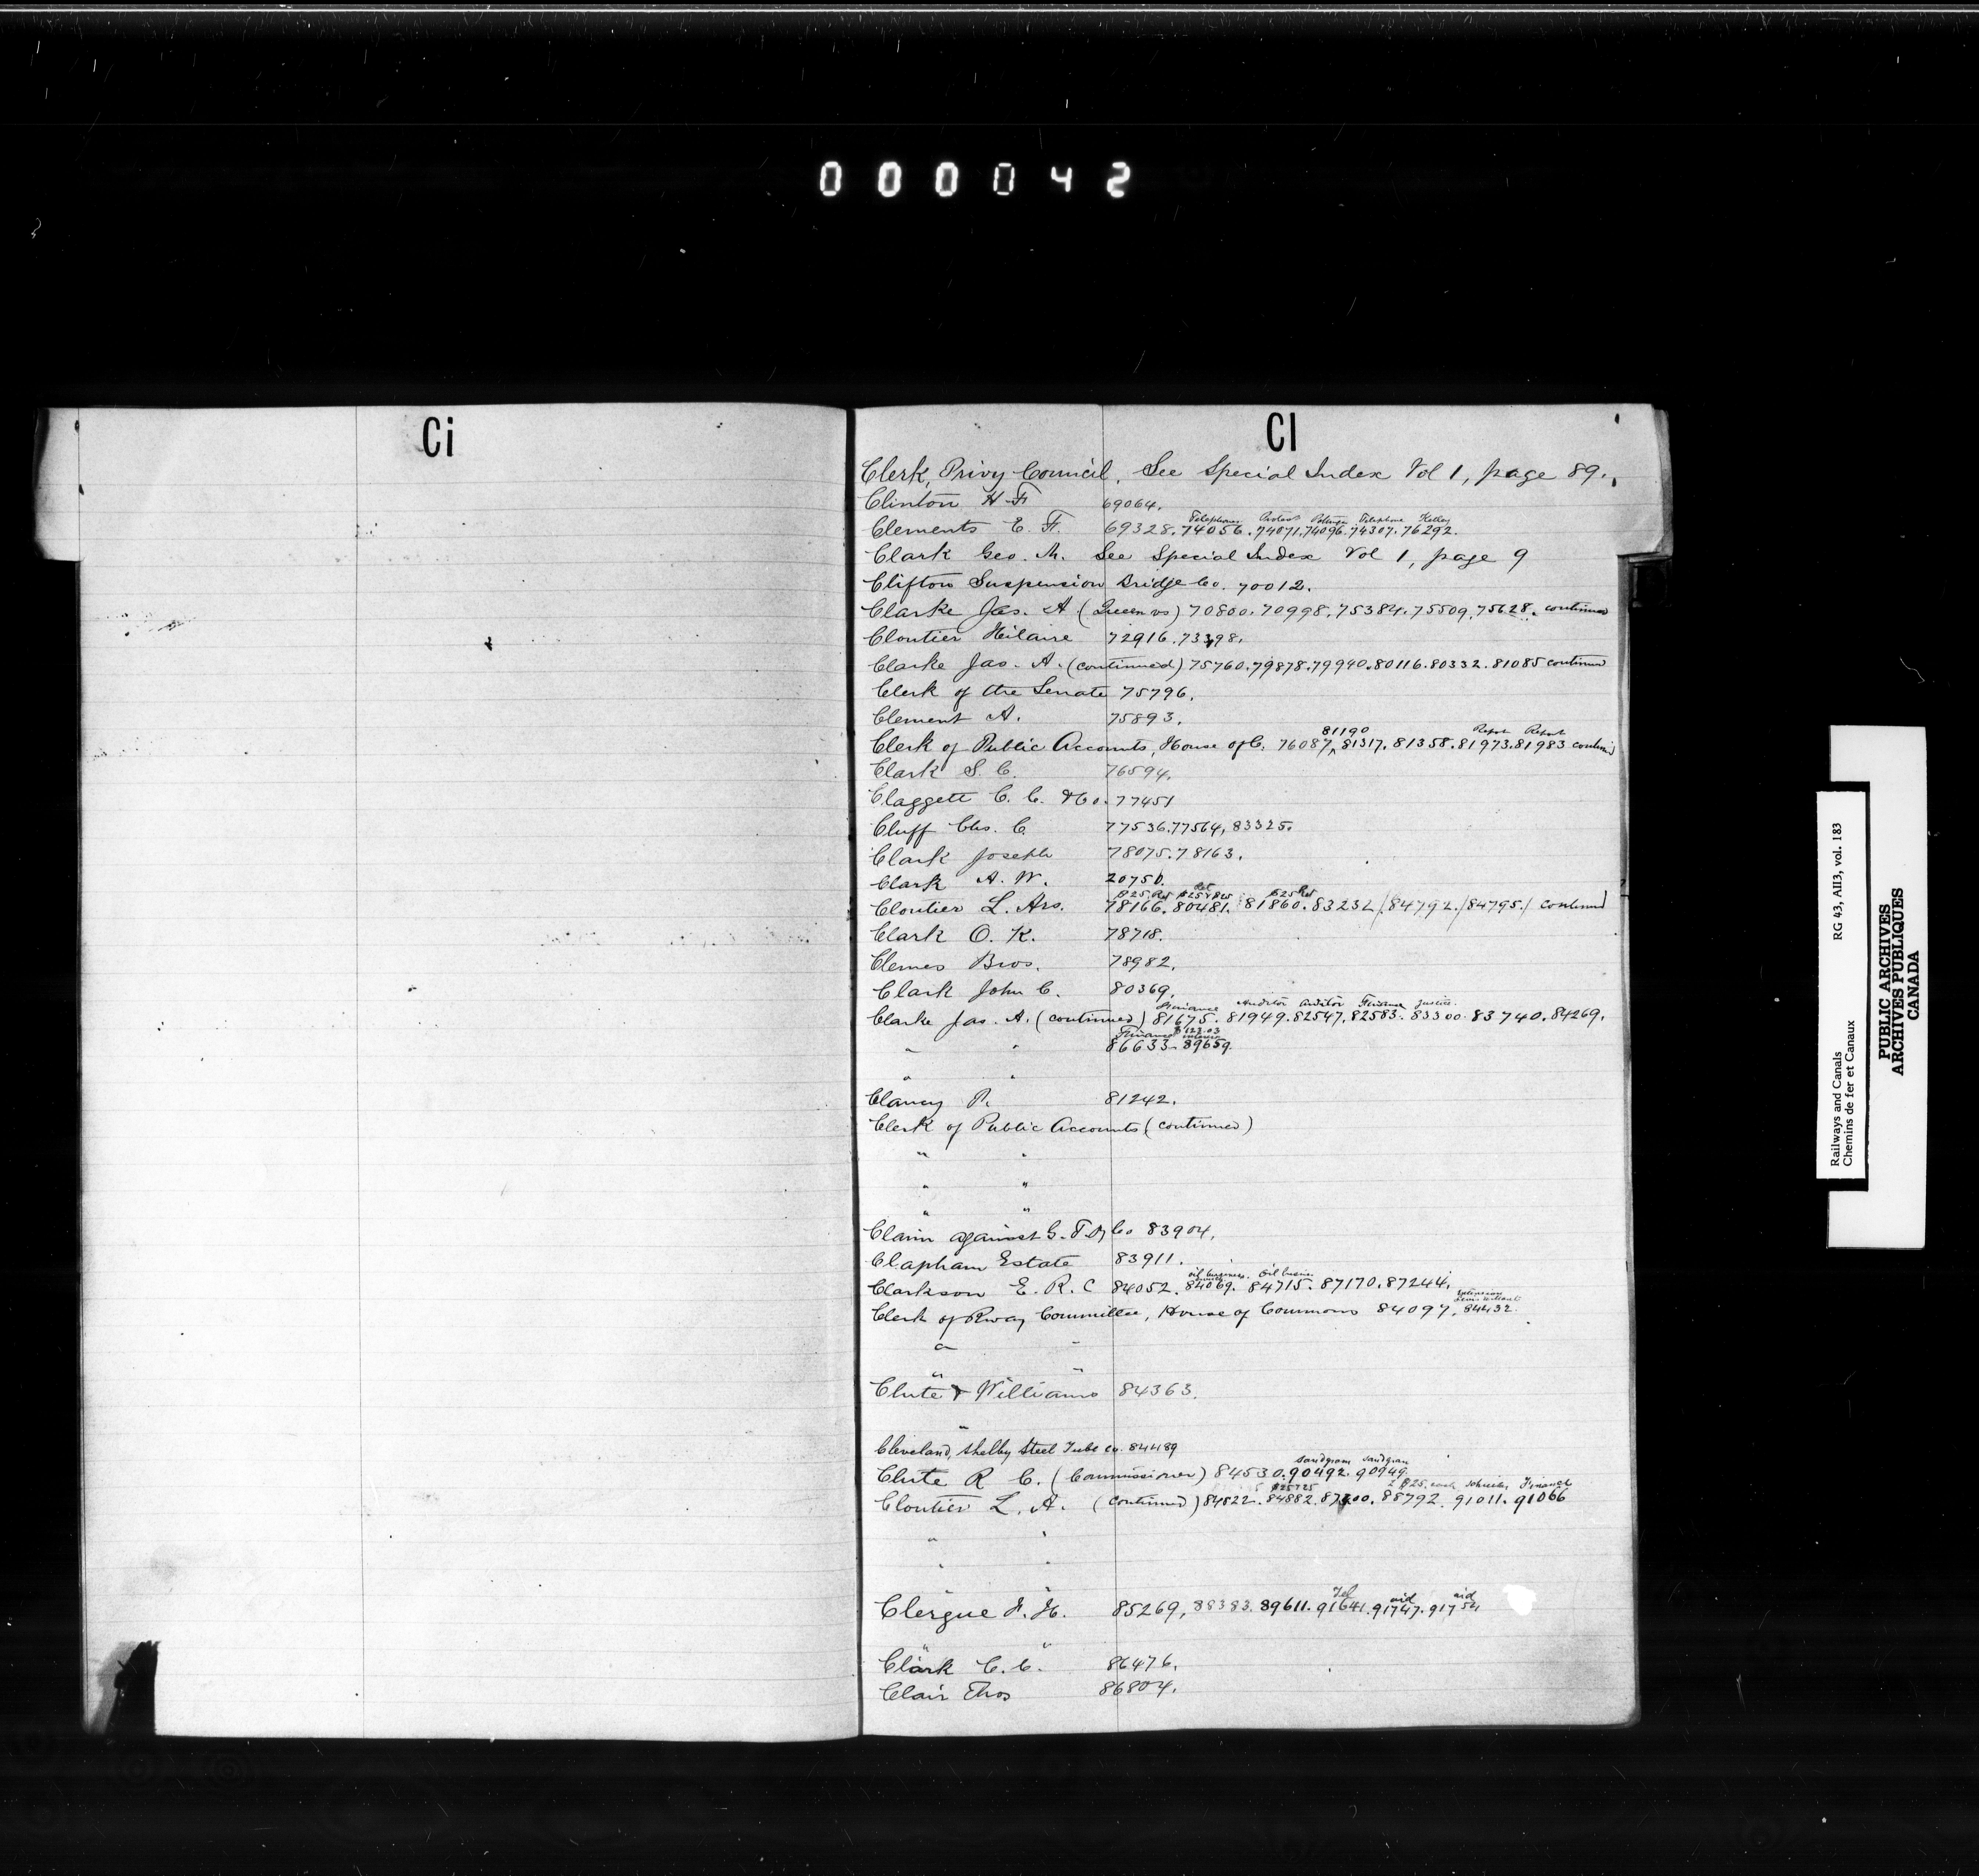 000042
Ci
Cl
Clerk, Privy Council, See Special Index Vol 1, page 89.
Clinton H F 69064.
Telephones Protest Telephone Kelley
Clements E. F. 69328. 74056. 74071. 74096. 74307. 76292.
Clark Geo. M. See Special Index Vol 1, page 9
Clifton Suspension Bridge Co. 70012.
Clarke Jas. A (Queen vs) 70800. 70998. 75384. 75509. 75628. continued
Cloutier Hilaire 72916. 73398.
Clarke Jas. A. (continued) 75760. 79878. 79940. 80116. 80332. 81085 continued
Clerk of the Senate 75796.
Clement A. 75893.
81190 Report Report
Clerk of Public Accounts, House of C. 76087, 81317. 81358. 81973. 81983 contin'd
Clark S. C. 76594.
Claggett C. C. & Co. 77451
Cluff Chs. C. 77536. 77564, 83325.
Clark Joseph 78075. 78163.
Clark A. W. 20750.
$25. Ret $25 Ret $25 Ret
Cloutier L. Ars. 78166. 80481. 81860. 83232 /. 84792. / 84795. / continued
Clark O. K. 78718.
Clemes Bros. 78982.
Clark John C. 80369.
Finance Auditor Auditor Finance Justice
Clarke Jas. A. (continued) 81675. 81949. 82547. 82583. 83300. 83740. 84269.
Finance $123.03
" " 86633. 89659.
" "
Clancy P. 81242.
Clerk of Public Accounts (continued)
" "
" "
" "
Claim against G. T. Ry Co 83904.
Clapham Estate 83911.
oil business oil busin
Clarkson E. R. C 84052. 84069. 84715. 87170. 87244.
Clerk of Rway Committee, House of Commons 84097. 84432.
" "
" "
Clute & Williams 84363.
"
Cleveland, Shelby Steel Tube Co. 84489
Sandgram Sandgram
Clute R C. (Commissioner) 84530. 90492. 90949.
$25 & 25 2 $25. each Wheeler Finance
Cloutier L. A. (continued) 84522. 84882. 87300. 88792. 91011. 91066
" "
" "
Tel aid aid
Clergue F. H. 85269, 88383. 89611. 91641. 91747. 91754
" "
Clark C. C. 86476.
Clair Thos 86804.
Railways and Canals RG 43, AII3, vol. 183
Chemins de fer et Canaux
PUBLIC ARCHIVES
ARCHIVES PUBLIQUES
CANADA